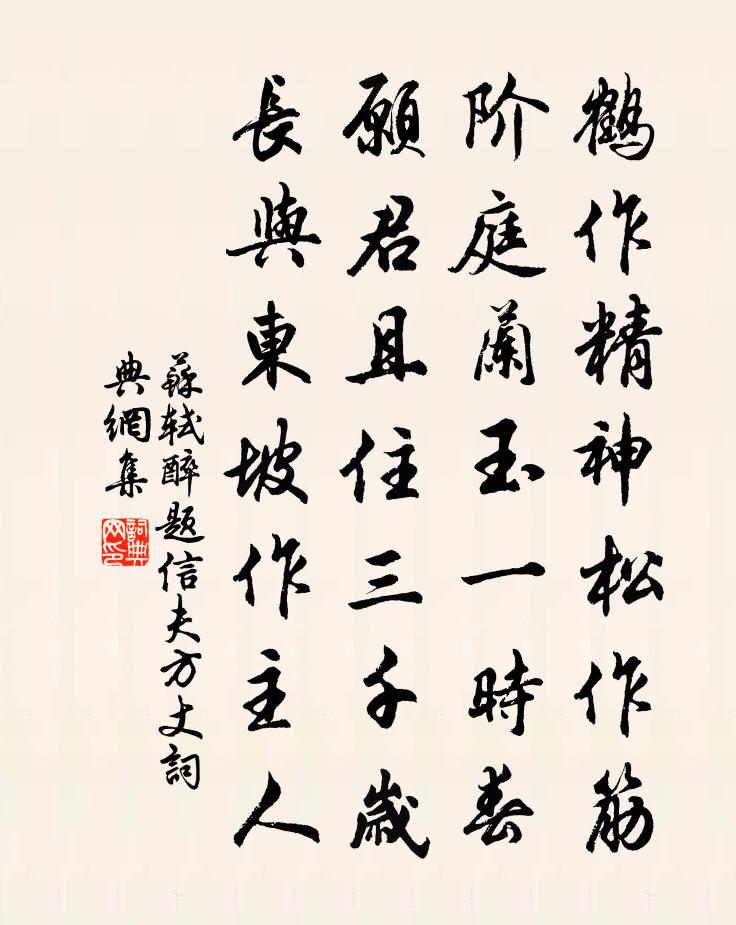 鶴作精神松作筋
阶庭蘭玉一時春
願君且住三千歲
長與東坡作主人
蘇軾醉题信夫方丈詞
典網集
詞典网印